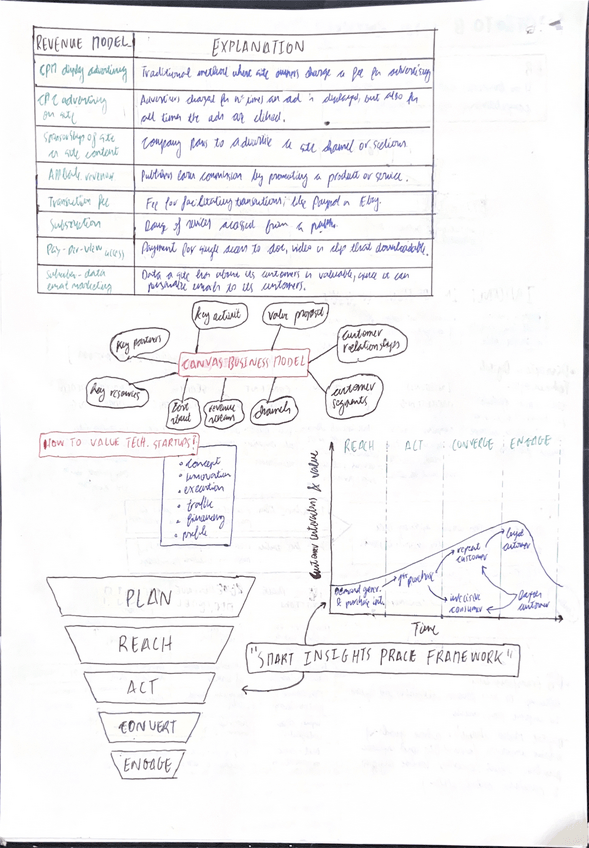 REVENUE MODEL
EXPLANATION
CPM display advertising
Traditional method where site owners charge a fee for advertising
CPC advertising
on site
Advertisers charged for nº times an ad is displayed, but also for
all times the ads are clicked.
Sponsorship of site
or site content
Company pays to advertise a site channel or sections
Affiliate revenue
Publishers earn commission by promoting a product or service.
Transaction fee
Fee for facilitating transactions, like Paypal or Ebay.
Subscription
Range of services accessed from a
Pay-per-view
access
Payment for single access to doc, video or clip that downloadable.
data
email marketing
Data a site has about its customers is valuable, since it can
emails to its customers.
key activit
value propos
key partners
customer
relationships
CANVAS BUSINESS MODEL
key resources
cost
struct
revenue
stream
channels
customer
segments
HOW TO VALUE TECH. STARTUPS?
• concept
• innovation
• execution
• traffic
• financing
• profile
REACH
ACT
CONVERGE
ENGAGE
Customer interactions & value
Demand gener.
& purchase inte.
1st purchase
repeat
customer
loyal
customer
inactive
consumer
customer
Time
PLAN
REACH
ACT
CONVERT
ENGAGE
"SMART INSIGHTS PRACE FRAMEWORK"